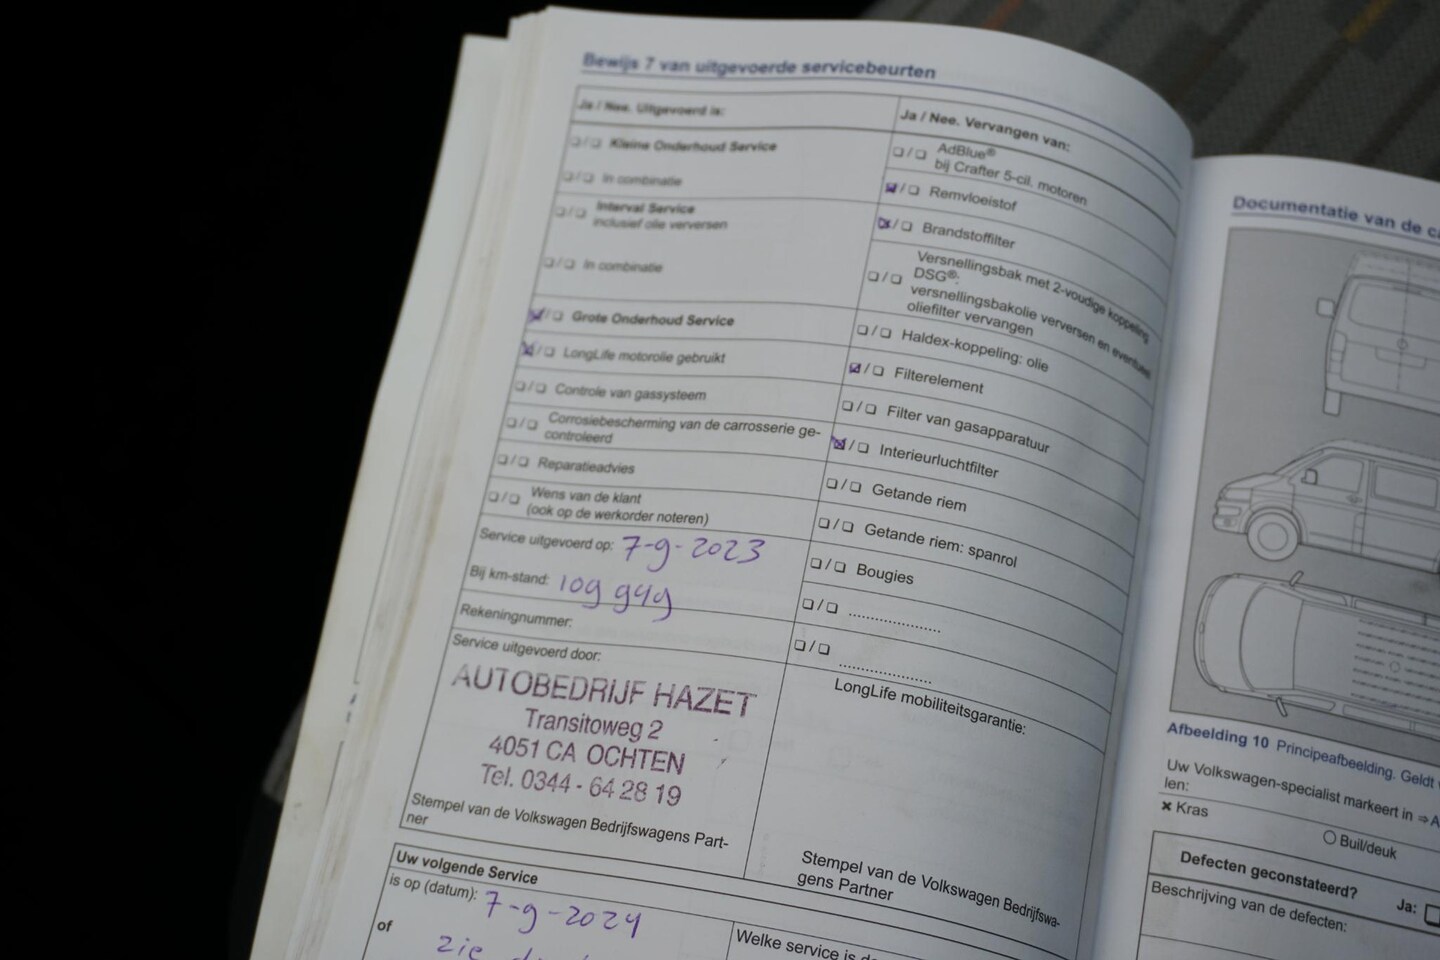 Bewijs 7 van uitgevoerde servicebeurten
Ja / Nee. Uitgevoerd is:
❏/❏ Kleine Onderhoud Service
❏/❏ In combinatie
❏/❏ Interval Service
inclusief olie verversen
❏/❏ In combinatie
☒/❏ Grote Onderhoud Service
☒/❏ LongLife motorolie gebruikt
❏/❏ Controle van gassysteem
❏/❏ Corrosiebescherming van de carrosserie ge-
controleerd
❏/❏ Reparatieadvies
❏/❏ Wens van de klant
(ook op de werkorder noteren)
Service uitgevoerd op: 7-9-2023
Bij km-stand: 109 949
Rekeningnummer:
Service uitgevoerd door:
AUTOBEDRIJF HAZET
Transitoweg 2
4051 CA OCHTEN
Tel. 0344 - 64 28 19
Stempel van de Volkswagen Bedrijfswagens Part-
ner
Ja / Nee. Vervangen van:
❏/❏ AdBlue®
bij Crafter 5-cil. motoren
☒/❏ Remvloeistof
☒/❏ Brandstoffilter
Versnellingsbak met 2-voudige koppeling
❏/❏ DSG®:
versnellingsbakolie verversen en eventueel
oliefilter vervangen
❏/❏ Haldex-koppeling: olie
☒/❏ Filterelement
❏/❏ Filter van gasapparatuur
☒/❏ Interieurluchtfilter
❏/❏ Getande riem
❏/❏ Getande riem: spanrol
❏/❏ Bougies
❏/❏ ....................
❏/❏ ....................
LongLife mobiliteitsgarantie:
Stempel van de Volkswagen Bedrijfswa-
gens Partner
Uw volgende Service
is op (datum): 7-9-2024
of zie
Welke service is
Documentatie van de
Afbeelding 10 Principeafbeelding. Geldt
Uw Volkswagen-specialist markeert in ⇒
len:
✖ Kras
○ Buil/deuk
Defecten geconstateerd?
Ja: ❏
Beschrijving van de defecten: